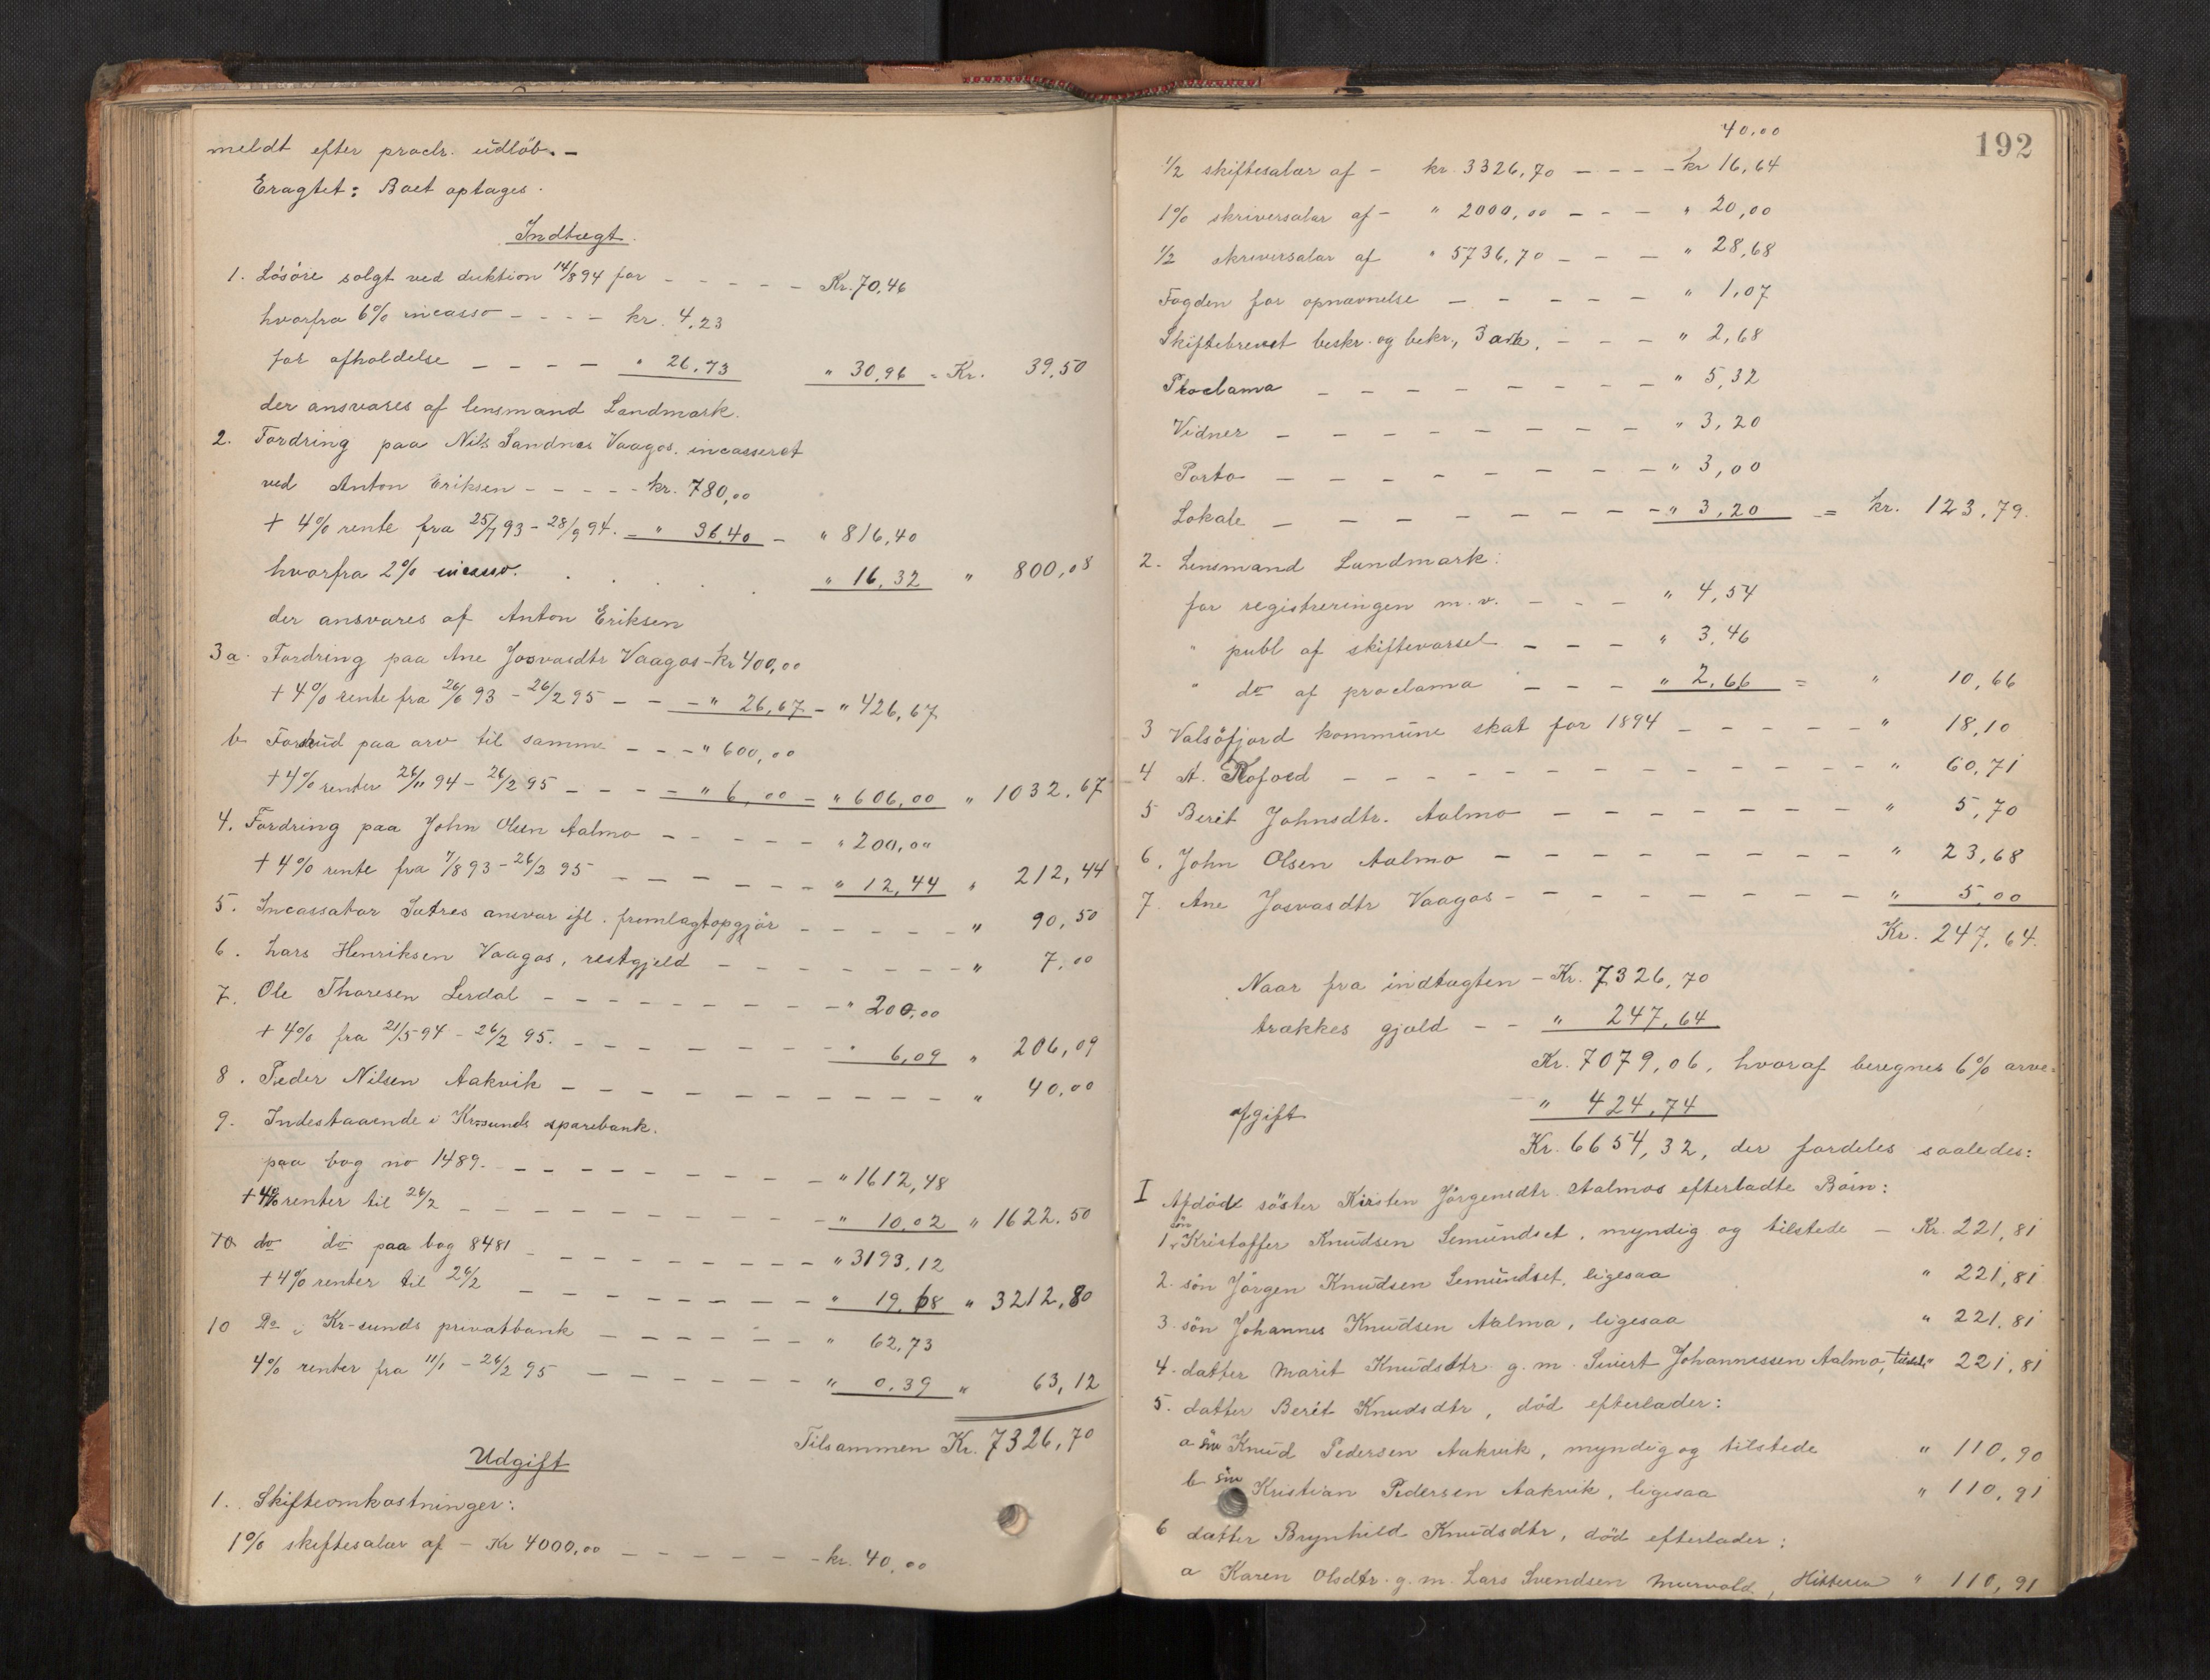 meldt efter procl. udløb. -
Eragtet: Boet optages.
Indtægt.
1. Løsøre solgt ved auktion 14/8 94 for - - - - - Kr. 70,46
hvorfra 6% incasso - - - - kr. 4,23
for afholdelse - - - - " 26,73 " 30,96 = Kr. 39,50
der ansvares af lensmand Landmark.
2. Fordring paa Nils Sandnes Vaagos, incasseret
ved Anton Eriksen - - - - - kr. 780,00
+ 4% rente fra 25/7 93 - 28/9 94. = " 36,40 - " 816,40
hvorfra 2% incasso. . . . . " 16,32 " 800,08
der ansvares af Anton Eriksen
3 a. Fordring paa Ane Josvasdtr Vaagos - kr 400,00
+ 4% rente fra 26/6 93 - 26/2 95 - - - " 26,67 - " 426,67
b Forskud paa arv til samme - - - " 600,00
+ 4% renter 26/11 94 - 26/2 95 - - - - " 6,00 - " 606,00 " 1032.67
4. Fordring paa John Olsen Aalmo - - - - - " 200,00
+ 4% rente fra 7/8 93 - 26/2 95 - - - - - - - " 12,44 " 212,44
5. Incassator Sætres ansvar ifl. fremlagt opgjør - - - - - " 90,50
6. Lars Henriksen Vaagos, restgjeld - - - - - - - - " 7,00
7. Ole Thoresen Lerdal - - - - - - - - - - " 200,00
+ 4% fra 21/5 94 - 26/2 95. - - - - - - - - - " 6,09 " 206,09
8. Peder Nilsen Aakvik - - - - - - - - - - " 40,00
9. Indestaaende i Kr.sunds sparebank.
paa bog no 1489. - - - - - - - - - " 1612,48
+ 4% renter til 26/2 - - - - - - - - - - - " 10,02 " 1622.50
10 do do paa bog 8481 - - - - - - - - - " 3193,12
+ 4% renter til 26/2 - - - - - - - - " 19,68 " 3212,80
10 Do i Kr-sunds privatbank - - - - - - " 62,73
4% renter fra 11/1 - 26/2 95 - - - - - - " 0,39 " 63,12
Tilsammen Kr. 7326,70
Udgift
1. Skifteomkostninger:
1% skiftesalær af - Kr 4000,00 - - - - - - kr. 40,00
192
40,00
1/2 skiftesalær af - kr. 3326,70 - - - - kr 16,64
1% skriversalær af - " 2000,00 - - - " 20,00
1/2 skriversalær af " 5736,70 - - - " 28,68
Fogden for opnævnelse - - - - - " 1,07
Skiftebrevet beskr. og bekr., 3 ark. - - - " 2,68
Proclama - - - - - - - - - " 5,32
Vidner - - - - - - - - - " 3,20
Porto - - - - - - - - - " 3,00
Lokale - - - - - - - - - " 3,20 = kr. 123,79.
2. Lensmand Landmark:
for registreringen m. v. - - - " 4,54
" publ af skiftevarsel - - - " 3,46
" do af proclama - - - " 2,66 = " 10,66
3 Valsøfjord kommune skat for 1894 - - - - - " 18,10
4 A. Kofoed - - - - - - - - - - - - - " 60,71
5 Berit Johnsdtr. Aalmo - - - - - - - - " 5,70
6. John Olsen Aalmo - - - - - - - - - " 23,68
7. Ane Josvasdtr Vaagos - - - - - - - - - " 5,00
Kr. 247,64.
Naar fra indtægten - Kr. 7326,70
trækkes gjæld - - " 247,64
Kr. 7079,06, hvoraf beregnes 6% arve=
afgift " 424,74
Kr. 6654,32, der fordeles saaledes:
I Afdøde søster Kirsten Jørgensdtr. Aalmos efterladte Børn:
1. søn Kristoffer Knudsen Semundset, myndig og tilstede - Kr. 221,81
2. søn Jørgen Knudsen Semundset, ligesaa " 221,81
3. søn Johannes Knudsen Aalmo, ligesaa " 221,81
4. datter Marit Knudsdtr. g. m. Sivert Johannessen Aalmo, tilst. " 221,81
5. datter Berit Knudsdtr, död efterlader:
a søn Knud Pedersen Aakvik, myndig og tilstede " 110,90
b søn Kristian Pedersen Aakvik, ligesaa " 110,91
6 datter Brynhild Knudsdtr, död efterlader:
a Karen Olsdtr. g. m. Lars Svendsen Murvold, Hitteren " 110,91